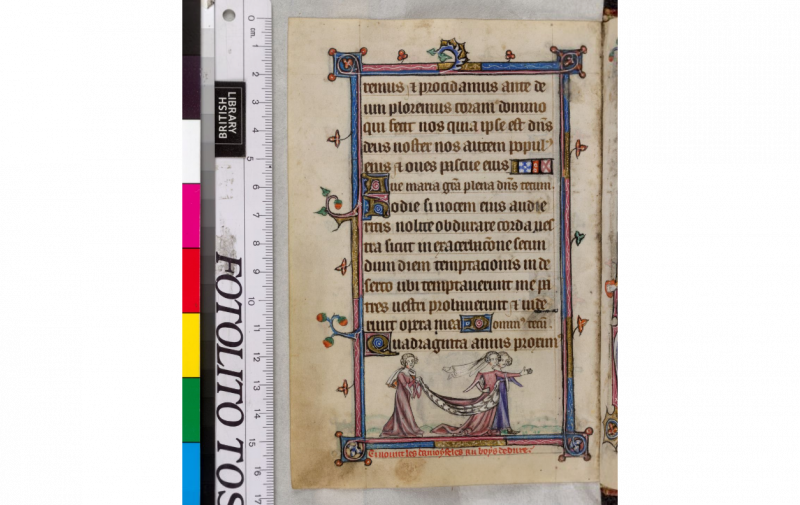 remus ⁊ procidamus ante de
um ploremus coram domino
qui fecit nos quia ipse est dn̄s
deus noster nos autem popul᾽
eius ⁊ oues pascue eius
Aue maria grā plena dn̄s tecum.
Hodie si uocem eius audie
ritis nolite obdurare corda ues
tra sicut in exacerbacōne secun
dum diem temptacionis in de
serto ubi temptauerunt me pa
tres uestri probauerunt ⁊ uide
runt opera mea Domin᾽ tecū.
Quadraginta annis proxim᾽
Ci uount les damoyseles au boys deduire.
BRITISH
LIBRARY
0 cm.
1
2
3
4
5
6
7
8
9
10
11
12
13
14
15
16
17
FOTOLITO TOS